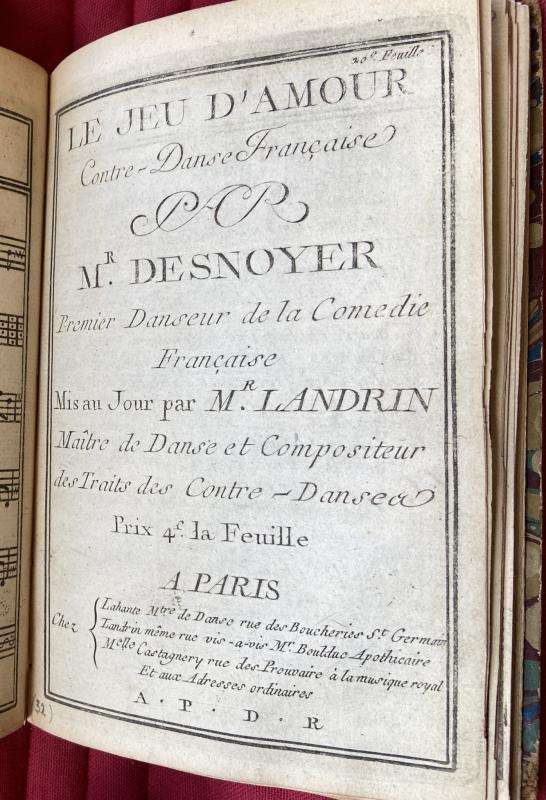 20e. Feuille
LE JEU D'AMOUR
Contre-Danse Française
PAR
MR. DESNOYER
Premier Danseur de la Comedie
Française
Mis au Jour par MR. LANDRIN
Maître de Danse et Compositeur
des Traits des Contre-Danses
Prix 4s. la Feuille
A PARIS
Chez
Lahante Mtre de Danse rue des Boucheries St. Germain
Landrin même rue vis-a-vis Mr. Boulduc Apothicaire
Melle Castagnery rue des Prouvaire à la musique royal
Et aux Adresses ordinaires
A. P. D. R
(32)